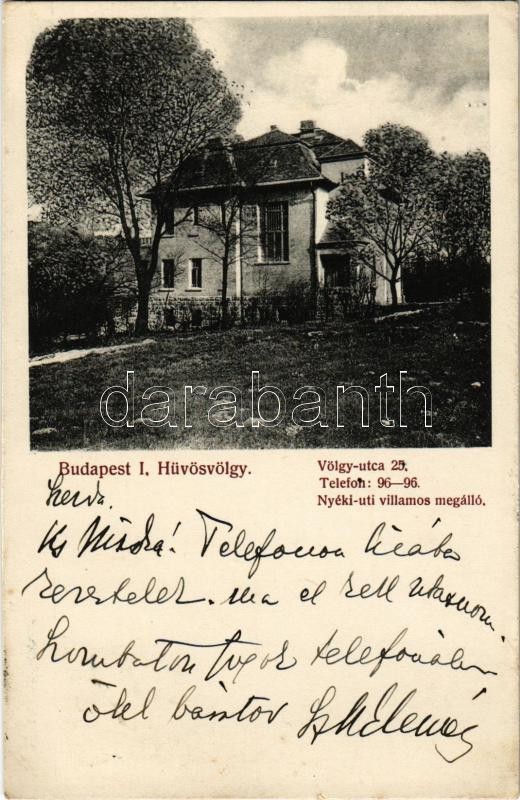 darabanth
Budapest I. Hűvösvölgy.
Völgy-utca 25.
Telefon: 96—96.
Nyéki-uti villamos megálló.
Szerda.
Telefonon hiába
kerestelek. ma el kell utaznom.
Szombaton fogok telefonálni
ölel